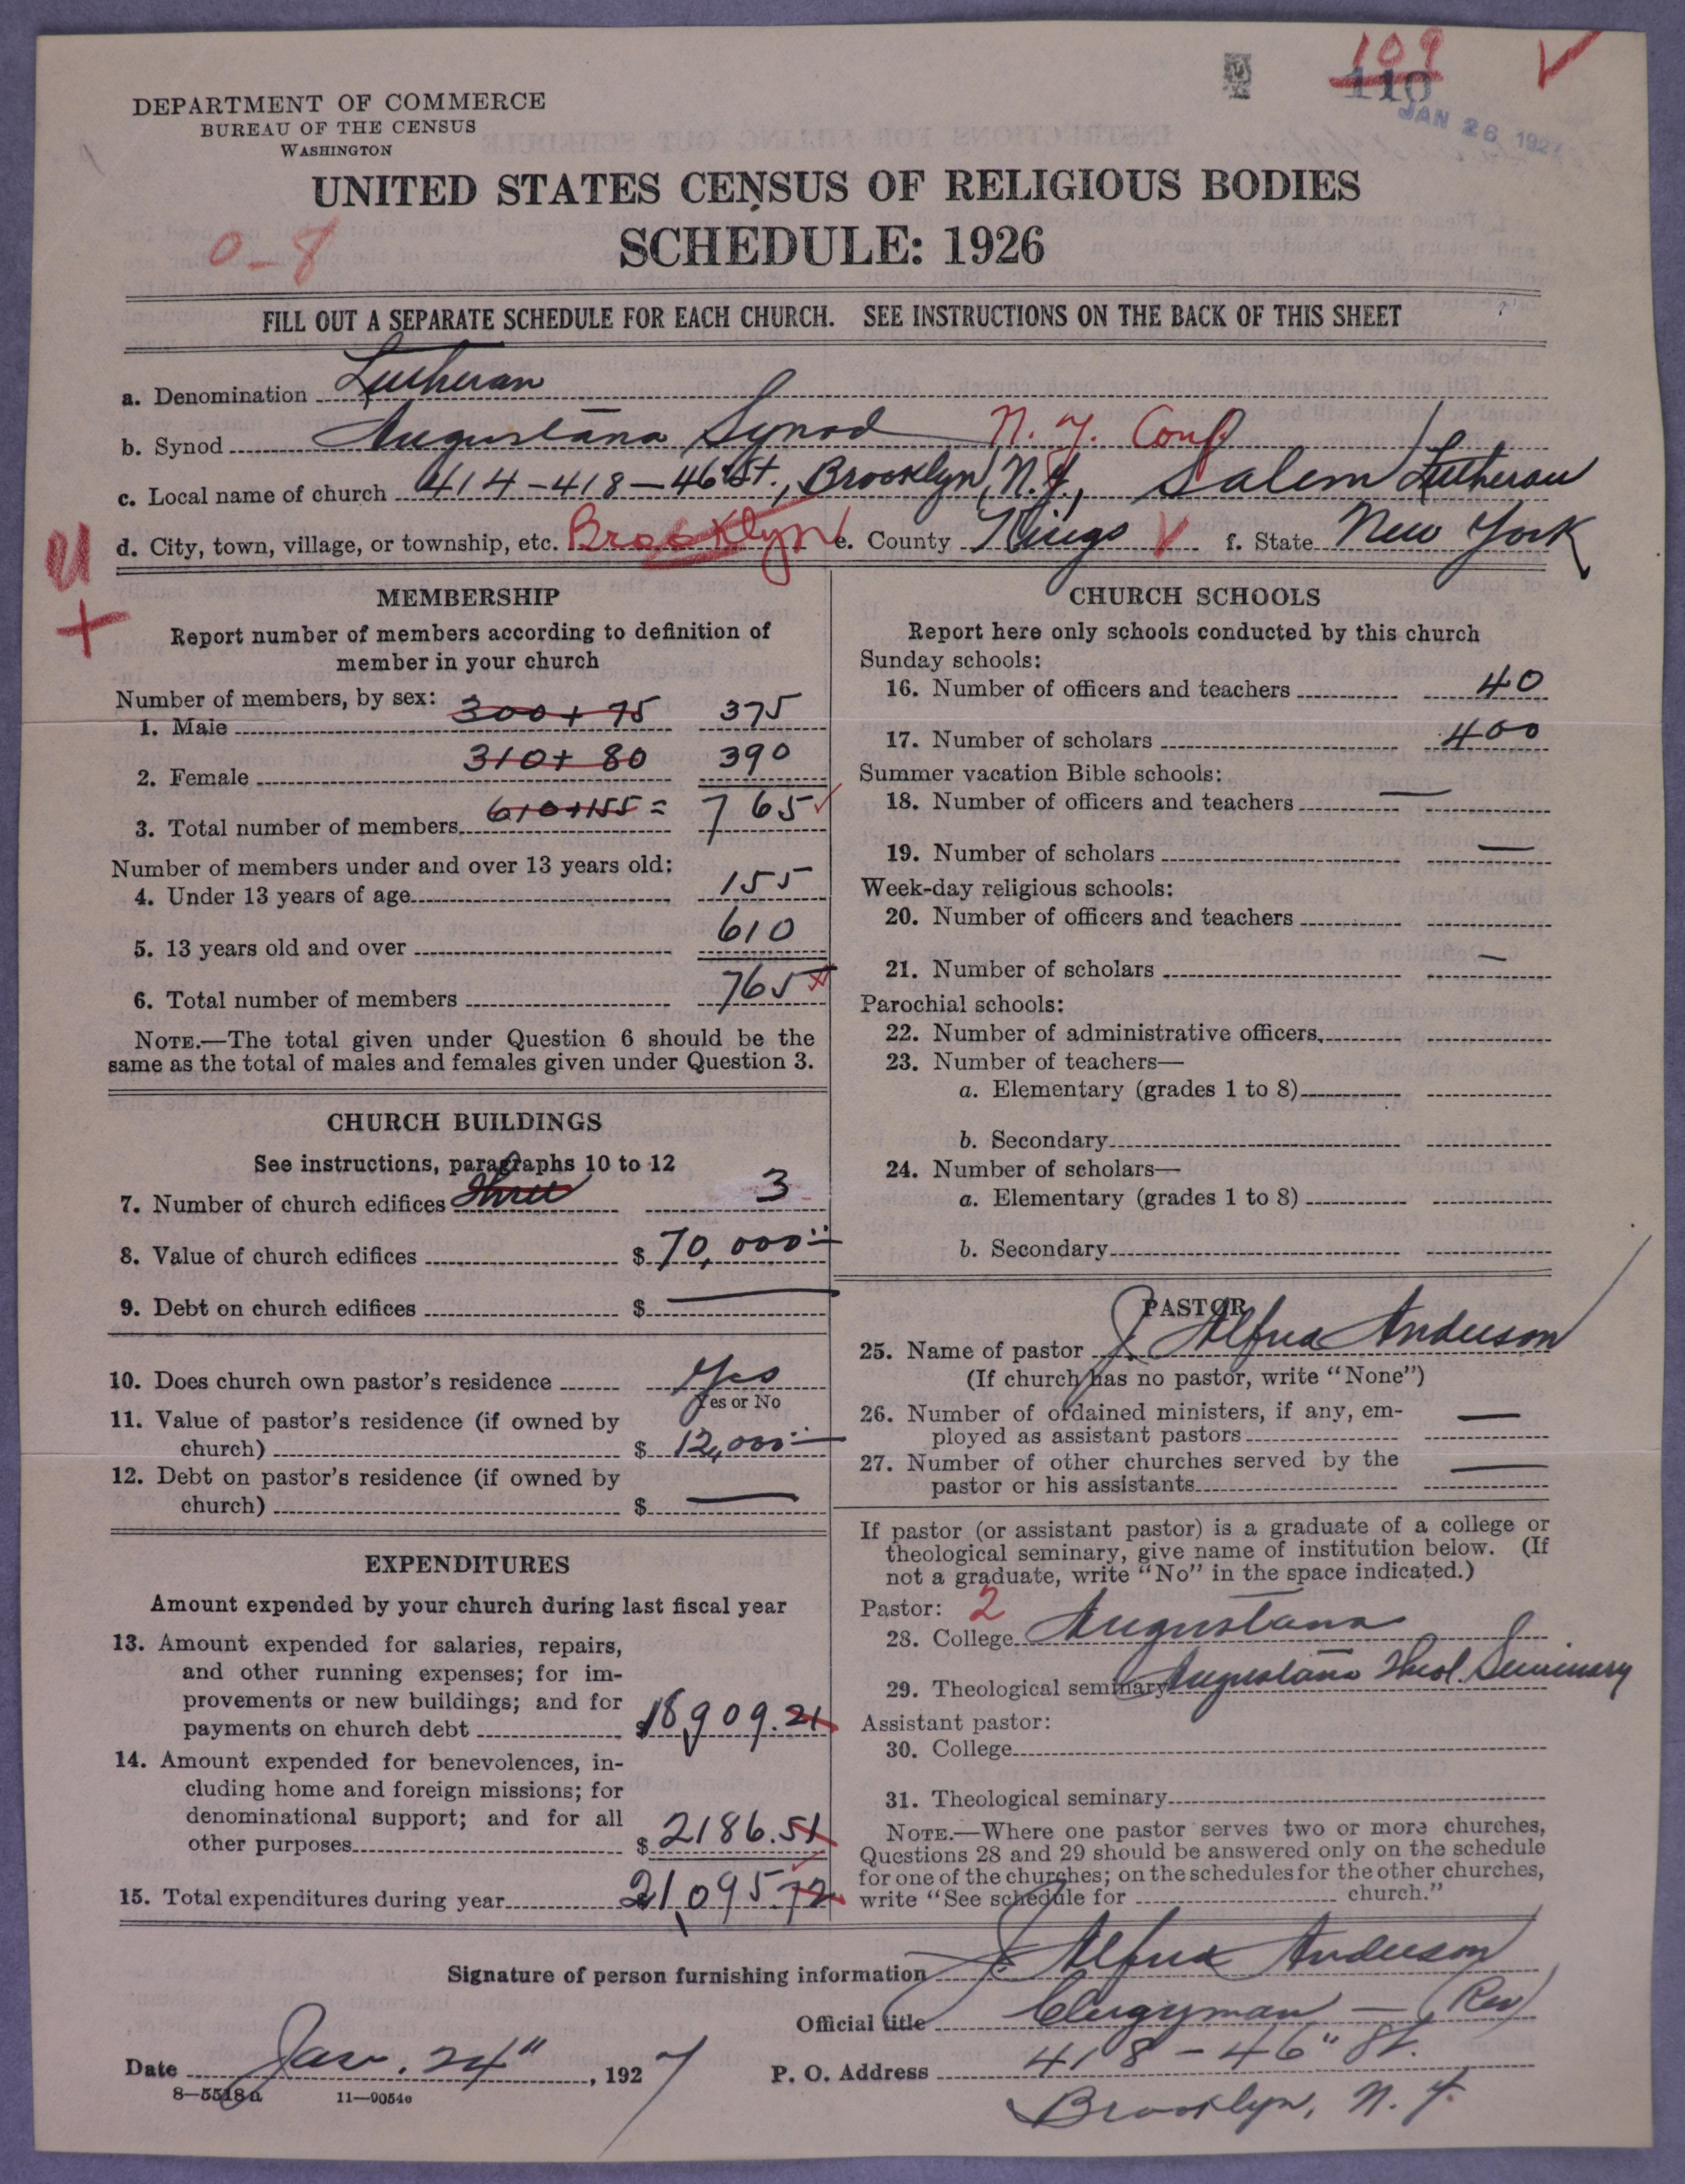 109
110
JAN 26 1927
DEPARTMENT OF COMMERCE
BUREAU OF THE CENSUS
WASHINGTON
UNITED STATES CENSUS OF RELIGIOUS BODIES
SCHEDULE: 1926
0-8
FILL OUT A SEPARATE SCHEDULE FOR EACH CHURCH. SEE INSTRUCTIONS ON THE BACK OF THIS SHEET
a. Denomination Lutheran
b. Synod Augustana Synod N. Y. Conf.
c. Local name of church 414-418-46 St., Brooklyn, N.Y., Salem Lutheran
d. City, town, village, or township, etc. Brooklyn e. County Kings f. State New York
MEMBERSHIP
Report number of members according to definition of
member in your church
Number of members, by sex:
1. Male 300+75 375
2. Female 310+80 390
3. Total number of members 610+155= 765
Number of members under and over 13 years old:
4. Under 13 years of age 155
5. 13 years old and over 610
6. Total number of members 765
NOTE.—The total given under Question 6 should be the
same as the total of males and females given under Question 3.
CHURCH BUILDINGS
See instructions, paragraphs 10 to 12
7. Number of church edifices three 3
8. Value of church edifices $70,000
9. Debt on church edifices $ —
10. Does church own pastor's residence Yes
Yes or No
11. Value of pastor's residence (if owned by
church) $12,000
12. Debt on pastor's residence (if owned by
church) $ —
EXPENDITURES
Amount expended by your church during last fiscal year
13. Amount expended for salaries, repairs,
and other running expenses; for im-
provements or new buildings; and for
payments on church debt $18,909.21
14. Amount expended for benevolences, in-
cluding home and foreign missions; for
denominational support; and for all
other purposes $2186.51
15. Total expenditures during year 21,095.72
CHURCH SCHOOLS
Report here only schools conducted by this church
Sunday schools:
16. Number of officers and teachers 40
17. Number of scholars 400
Summer vacation Bible schools:
18. Number of officers and teachers —
19. Number of scholars —
Week-day religious schools:
20. Number of officers and teachers
21. Number of scholars —
Parochial schools:
22. Number of administrative officers
23. Number of teachers—
a. Elementary (grades 1 to 8)
b. Secondary
24. Number of scholars—
a. Elementary (grades 1 to 8)
b. Secondary
PASTOR
25. Name of pastor J. Alfred Anderson
(If church has no pastor, write "None")
26. Number of ordained ministers, if any, em-
ployed as assistant pastors —
27. Number of other churches served by the
pastor or his assistants —
If pastor (or assistant pastor) is a graduate of a college or
theological seminary, give name of institution below. (If
not a graduate, write "No" in the space indicated.)
Pastor: 2
28. College Augustana
29. Theological seminary Augustana Theol. Seminary
Assistant pastor:
30. College
31. Theological seminary
NOTE.—Where one pastor serves two or more churches,
Questions 28 and 29 should be answered only on the schedule
for one of the churches; on the schedules for the other churches,
write "See schedule for church."
Signature of person furnishing information J. Alfred Anderson
Official title Clergyman — (Rev)
Date Jan. 24", 1927 P. O. Address 418-46" St.
Brooklyn, N. Y.
8—5518a 11—9054e